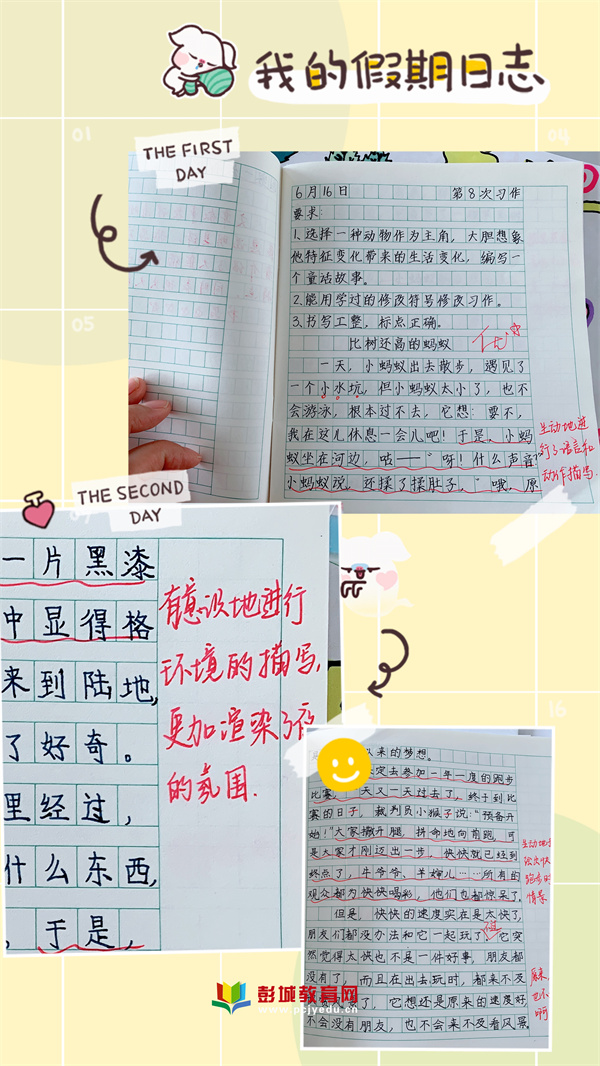 我的假期日志
01
04
THE FIRST
DAY
05
6月16日 第8次习作
要求:
1.选择一种动物作为主角,大胆想象
他特征变化带来的生活变化,编写一
个童话故事。
2.能用学过的修改符号修改习作。
3.书写工整,标点正确。
比树还高的蚂蚁
优
一天,小蚂蚁出去散步,遇见了
一个小水坑,但小蚂蚁太小了,也不
会游泳,根本过不去,它想:要不,
我在这儿休息一会儿吧!于是,小蚂
蚁坐在河边,咕——“呀!什么声音?”
小蚂蚁说,还揉了揉肚子,“哦,原
生动地进
行了语言和
动作描写.
THE SECOND
DAY
一片黑漆
中显得格
来到陆地,
了好奇。
里经过,
什么东西,
,于是,
有意识地进行
环境的描写,
更加渲染了夜
的氛围.
16
来的梦想。
定去参加一年一度的跑步
比赛。一天又一天过去了,终于到比
赛的日子,裁判员小猴子说:“预备开
始!”大家撒开腿,拼命地向前跑,可
是大家才刚迈出一步,快快就已经到
终点了,牛爷爷、羊婶儿……所有的
观众都为快快喝彩,他们也都惊呆了。
但是,快快的速度实在是太快了,
朋友们都没办法和它一起玩了。它突
然觉得太快也不是一件好事,朋友都
没有了,而且在出去玩时,都来不及
了,它想还是原来的速度好,
不会没有朋友,也不会来不及看风景。
生动地
跑步时
情景
彭城教育网
www.pcjyedu.cn